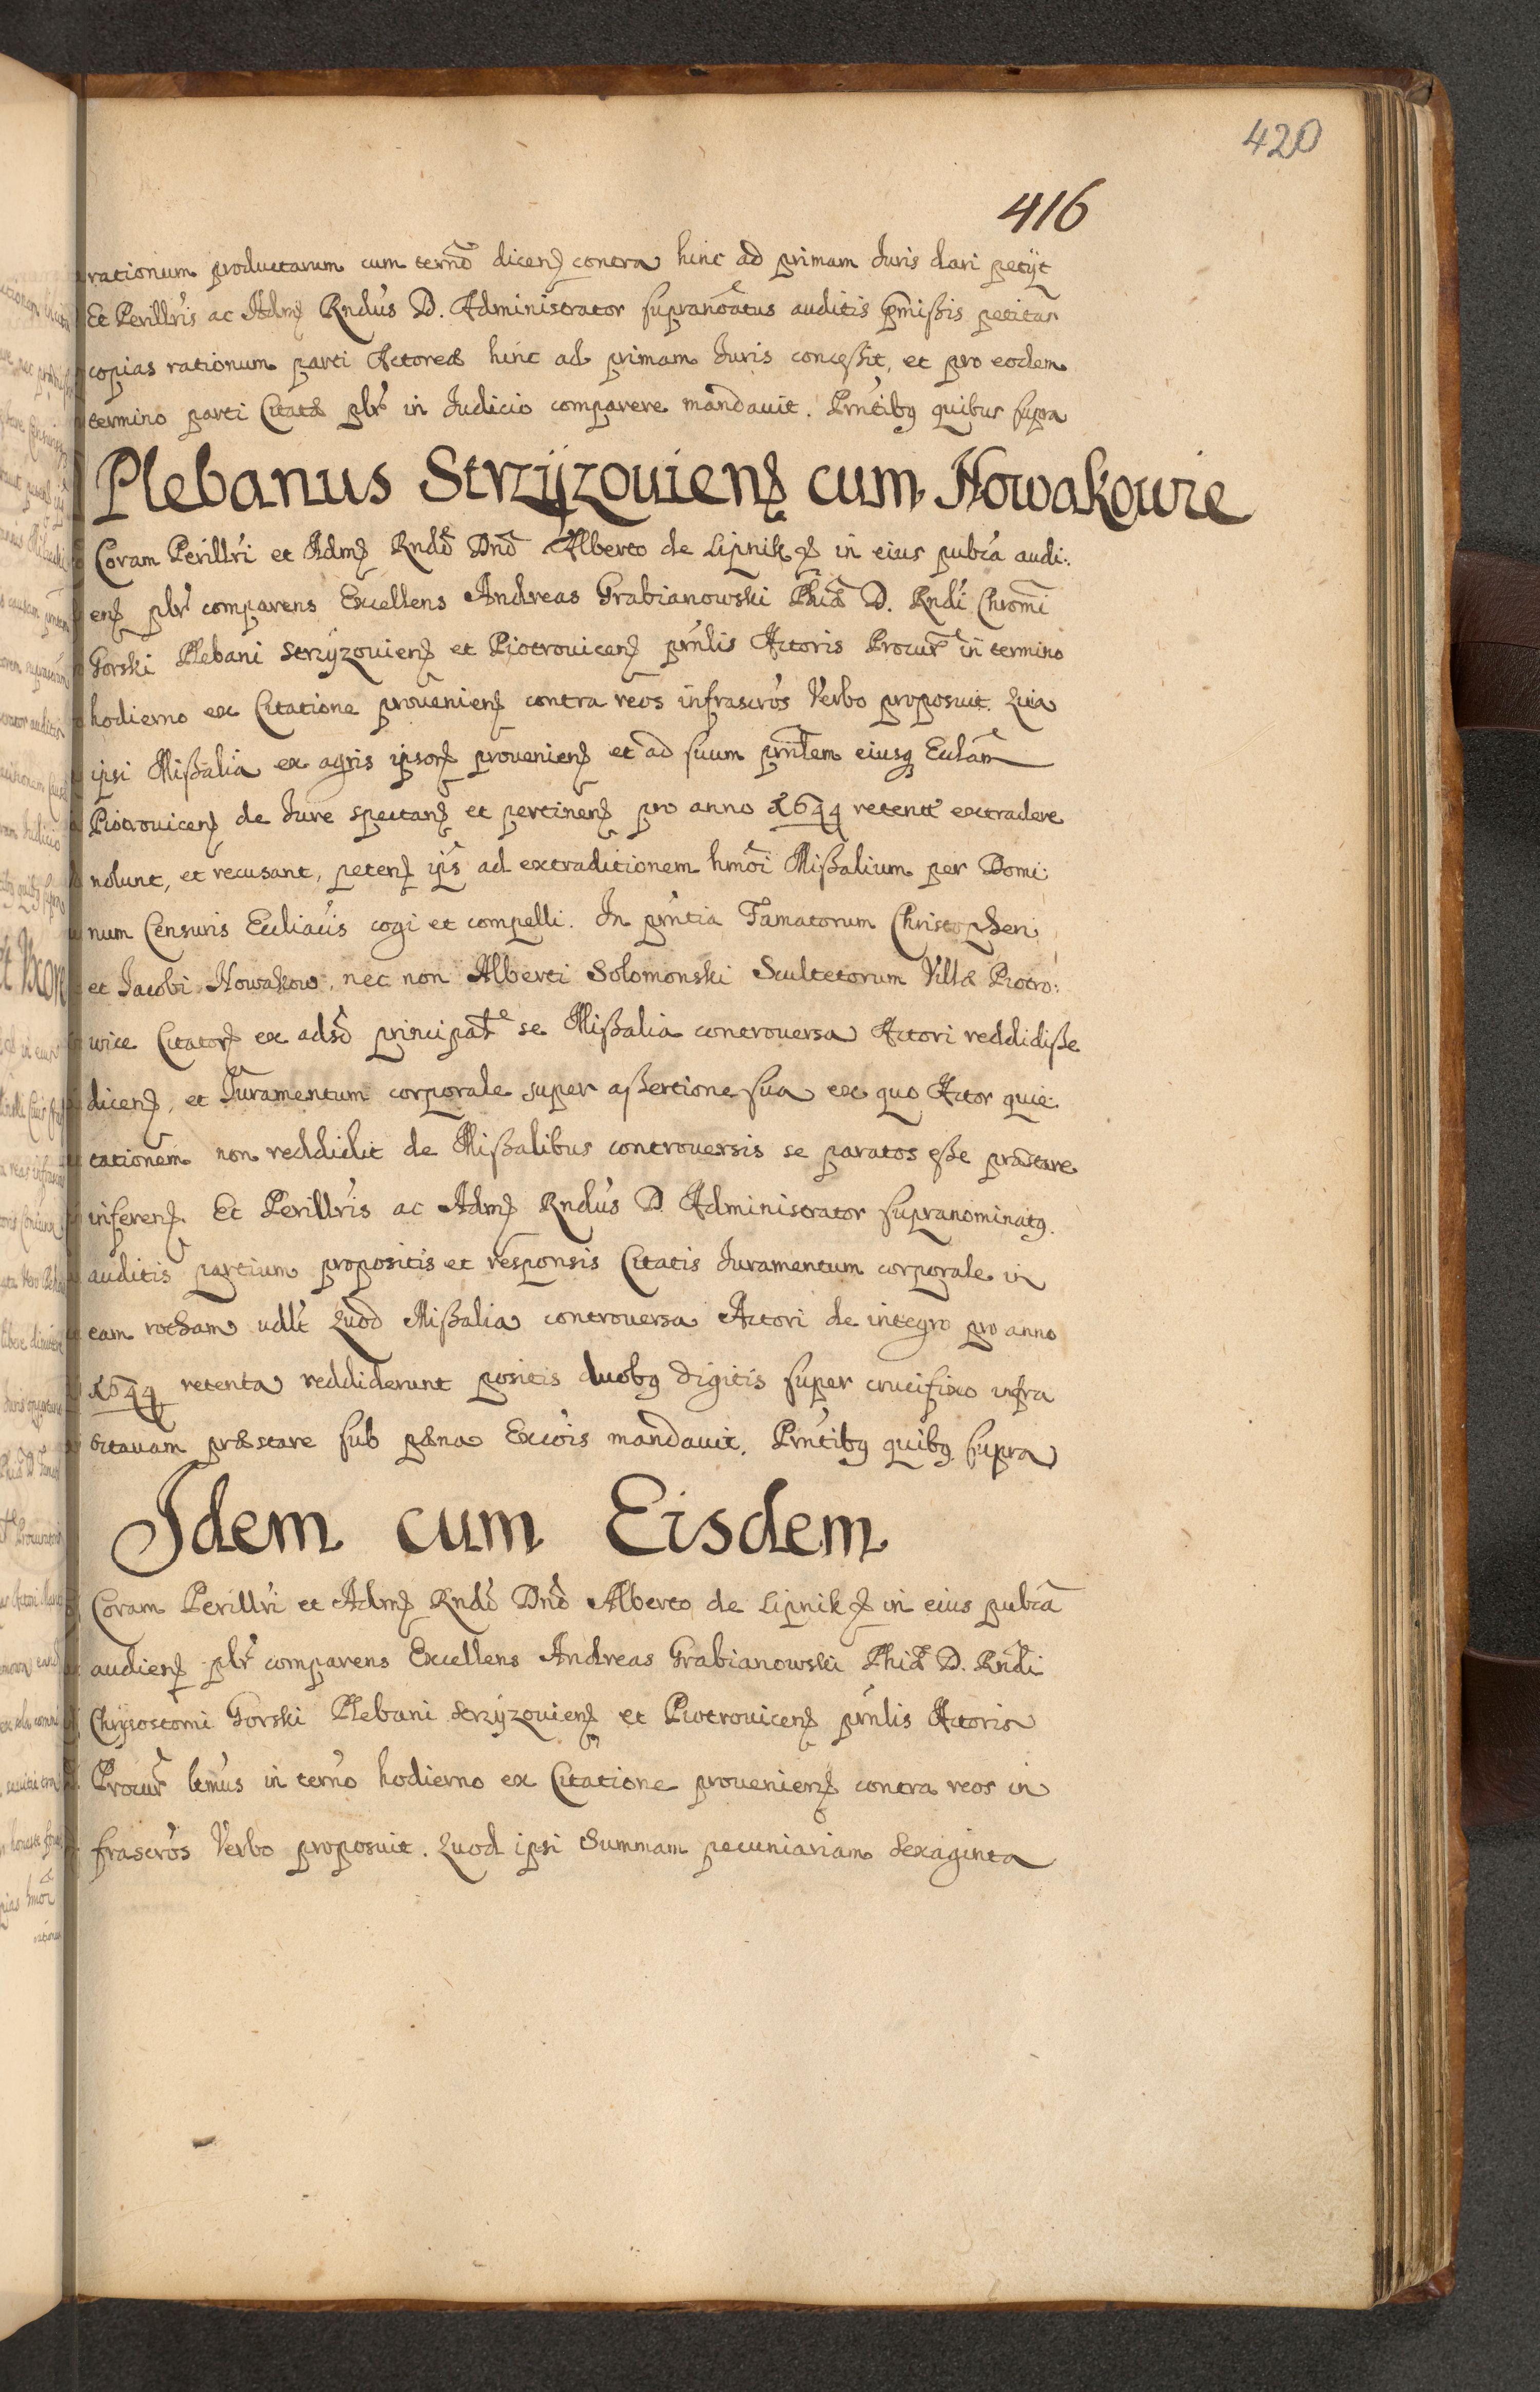 420
416
rationum productarum cum termō dicenꝭ contra hinc ad primam Juris dari petijt
Et Perillr̃is ac Admꝭ Rndús D. Administrator supranoãtus auditis p̃missis petitas
copias rationum parti Actoreæ hinc ad primam Juris concessit, et pro eodem
termino parti Citatæ pl̃r in Judicio comparere mandauit. Prńtibꝫ quibus supra
Plebanus Strzÿzouienꝭ cum Nowakowie
Coram Perillr̃i et Admꝭ Rndõ Dnõ Alberto de Lipnik ꝭ in eius pubca audi:
enꝭ pl̃r comparens Excellens Andreas Grabianowski Phiæ D. Rndi Chromi
Gorski Plebani Strzÿzouienꝭ et Piotrouicenꝭ prńlis Actoris Procur̃ in termino
hodierno ex Citatione prouenienꝭ contra reos infrascrōs Verbo proposuit. Quia
ipsi Missalia ex agris ipsorꝭ prouenienꝭ et ad suum prńlem eiusꝗ Ecclãm
Piotrouicenꝭ de Jure spectanꝭ et pertinenꝭ pro anno 1644 retenta extradere
nolunt, et recusant, petenꝭ ip̃s ad extraditionem hmōi Missalium per Domi:
num Censuris Eccliācis cogi et compelli. In prńtia Famatorum Christopheri
et Jacobi Nowakow, nec non Alberti Solomonski Scultetorum Villæ Piotro:
wice Citatorꝭ ex adsõ principałe se Missalia controuersa Actori reddidisse
dicenꝭ, et Juramentum corporale super assertione sua ex quo Actor quie:
tationem non reddidit de Missalibus controuersis se paratos esse præstare
inferenꝭ. Et Perillr̃is ac Admꝭ Rndús D. Administrator supranominatꝫ
auditis partium propositis et responsis Citatis Juramentum corporale in
eam rotham udlt Quod Missalia controuersa Actori de integro pro anno
1644 retenta reddiderunt positis duobꝫ digitis super crucifixo infra
octauam præstare sub pæna Exc̃ois mandauit. Prńtibꝫ quibꝫ supra
Idem cum Eisdem
Coram Perillr̃i et Admꝭ Rndõ Dnõ Alberto de Lipnik ꝭ in eius pubca
audienꝭ pl̃r comparens Excellens Andreas Grabianowski Phiæ D. Rndi
Chrysostomi Gorski Plebani Strzÿzouienꝭ et Piotrouicenꝭ prńlis Actoris
Procur̃ ltmus in termō hodierno ex Citatione prouenienꝭ contra reos in
frascrōs Verbo proposuit. Quod ipsi Summam pecuniariam Sexaginta